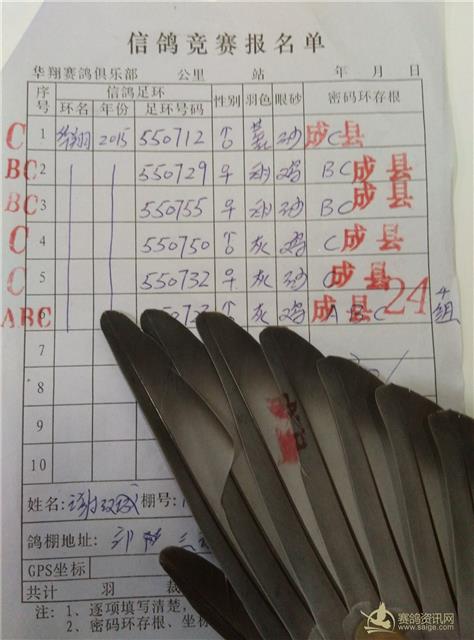 信鸽竞赛报名单
华翔赛鸽俱乐部 公里 站 年 月 日
序号 信鸽足环 性别 羽色 眼砂 密码环存根
环名 年份 足环号码
C 1 华翔 2015 550712 ♂ 砂 C 成县
BC 2 550729 ♀ 鸡 BC 成县
BC 3 550755 ♀ 砂 BC 成县
C 4 550750 ♂ 灰 鸡 C 成县
C 5 550732 ♀ 灰 砂 C 成县
ABC ♂ 灰 鸡 ABC 成县 24 组
7
8
9
10
姓名: 棚号:
鸽棚地址:
GPS坐标
共计 羽 裁
注: 1、逐项填写清楚,
2、密码环存根、坐标
赛鸽资讯网
www.saige.com